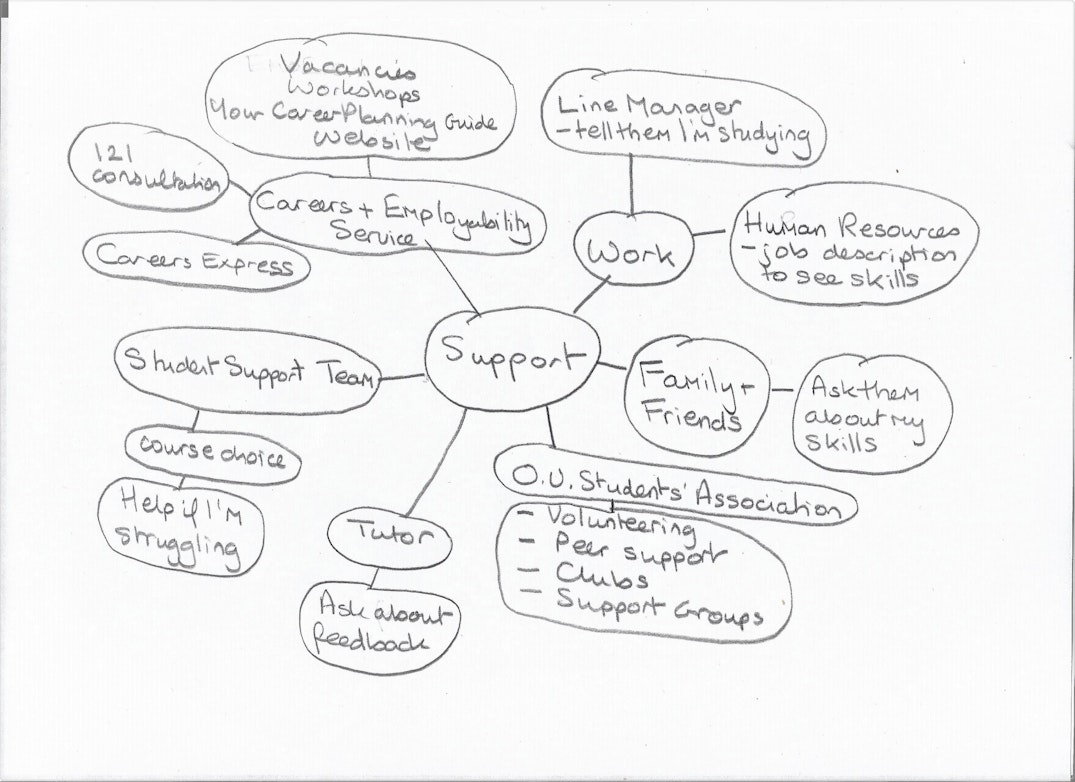 Vacancies
Workshops
Your Career Planning Guide
Website
Line Manager
- tell them I'm studying
121
consultation
Careers + Employability
Service
Careers Express
Work
Human Resources
- job description
to see skills
Support
Student Support Team
Family +
Friends
Ask them
about my
skills
course choice
Help if I'm
struggling
O.U. Students' Association
- Volunteering
- Peer support
- Clubs
- Support Groups
Tutor
Ask about
feedback